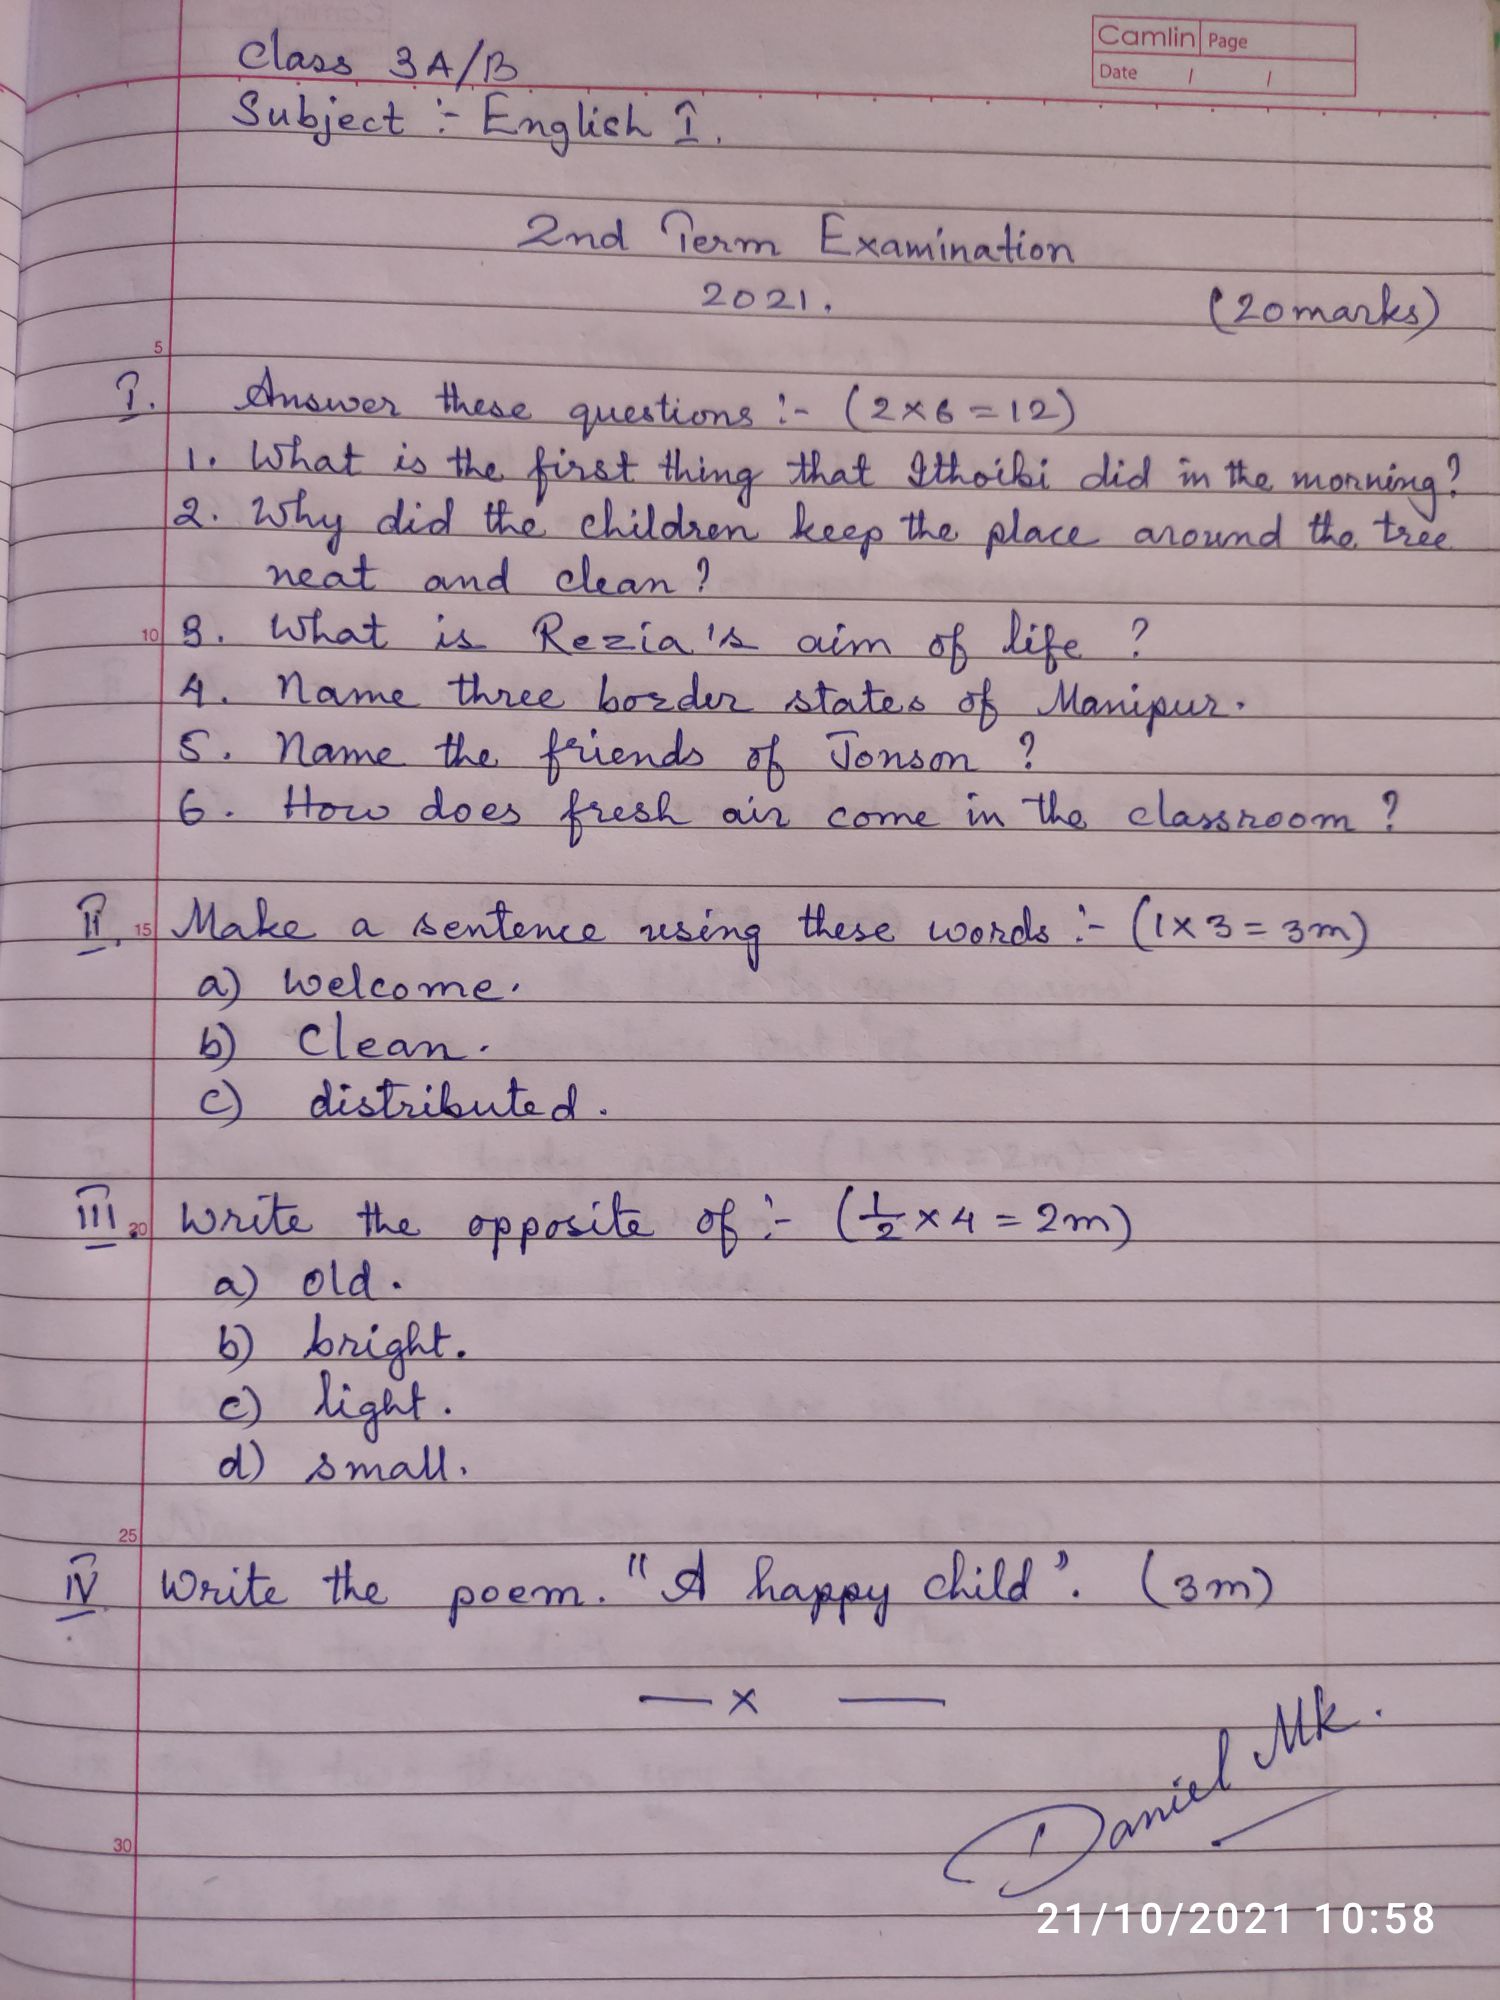 Class 3A/B
Camlin Page
Date / /
Subject :- English I.
2nd Term Examination
2021.
(20marks)
5
I. Answer these questions :- (2×6=12)
1. What is the first thing that Ithoibi did in the morning?
2. Why did the children keep the place around the tree
neat and clean?
10 3. What is Rezia's aim of life ?
4. Name three border states of Manipur.
5. Name the friends of Jonson ?
6. How does fresh air come in the classroom ?
II. 15 Make a sentence using these words :- (1×3=3m)
a) welcome.
b) Clean.
c) distributed.
III. 20 Write the opposite of :- (1/2×4=2m)
a) old.
b) bright.
c) light.
d) small.
25
IV. Write the poem. "A happy child". (3m)
— x —
Daniel Mk.
30
21/10/2021 10:58